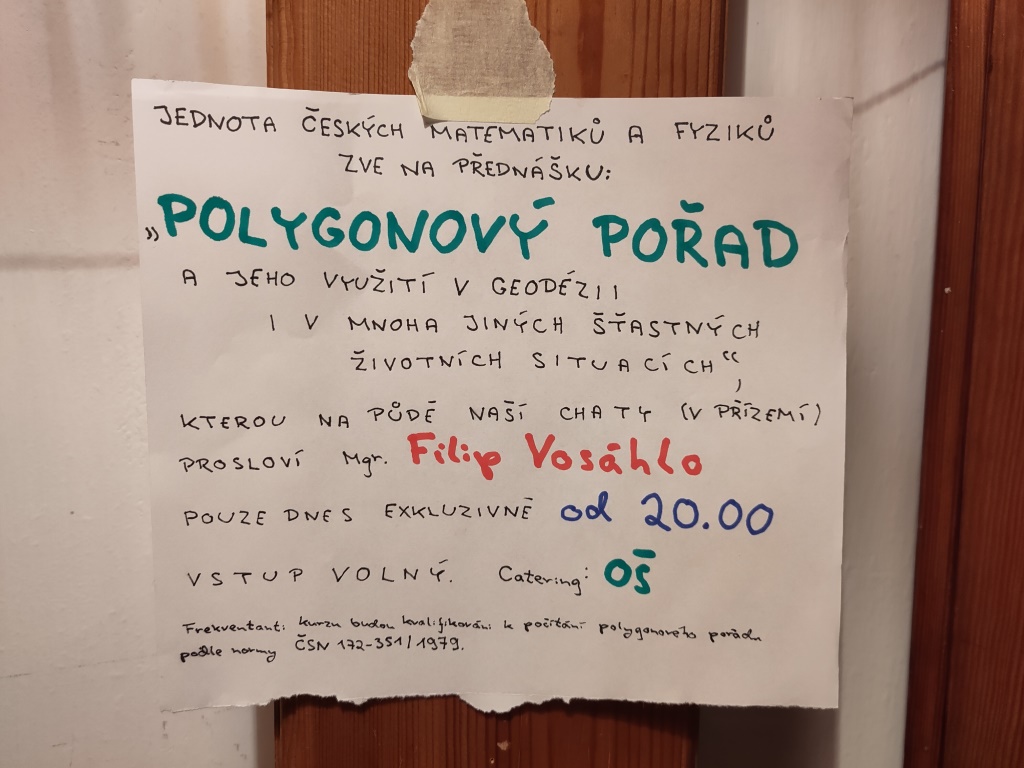 JEDNOTA ČESKÝCH MATEMATIKŮ A FYZIKŮ
ZVE NA PŘEDNÁŠKU:
„POLYGONOVÝ POŘAD
A JEHO VYUŽITÍ V GEODÉZII
I V MNOHA JINÝCH ŠŤASTNÝCH
ŽIVOTNÍCH SITUACÍCH“,
KTEROU NA PŮDĚ NAŠÍ CHATY (V PŘÍZEMÍ)
PROSLOVÍ Mgr. Filip Vosáhlo
POUZE DNES EXKLUZIVNĚ od 20.00
VSTUP VOLNÝ. Catering: OŠ
Frekventanti kurzu budou kvalifikováni k počítání polygonového pořadu
podle normy ČSN 172-351/1979.